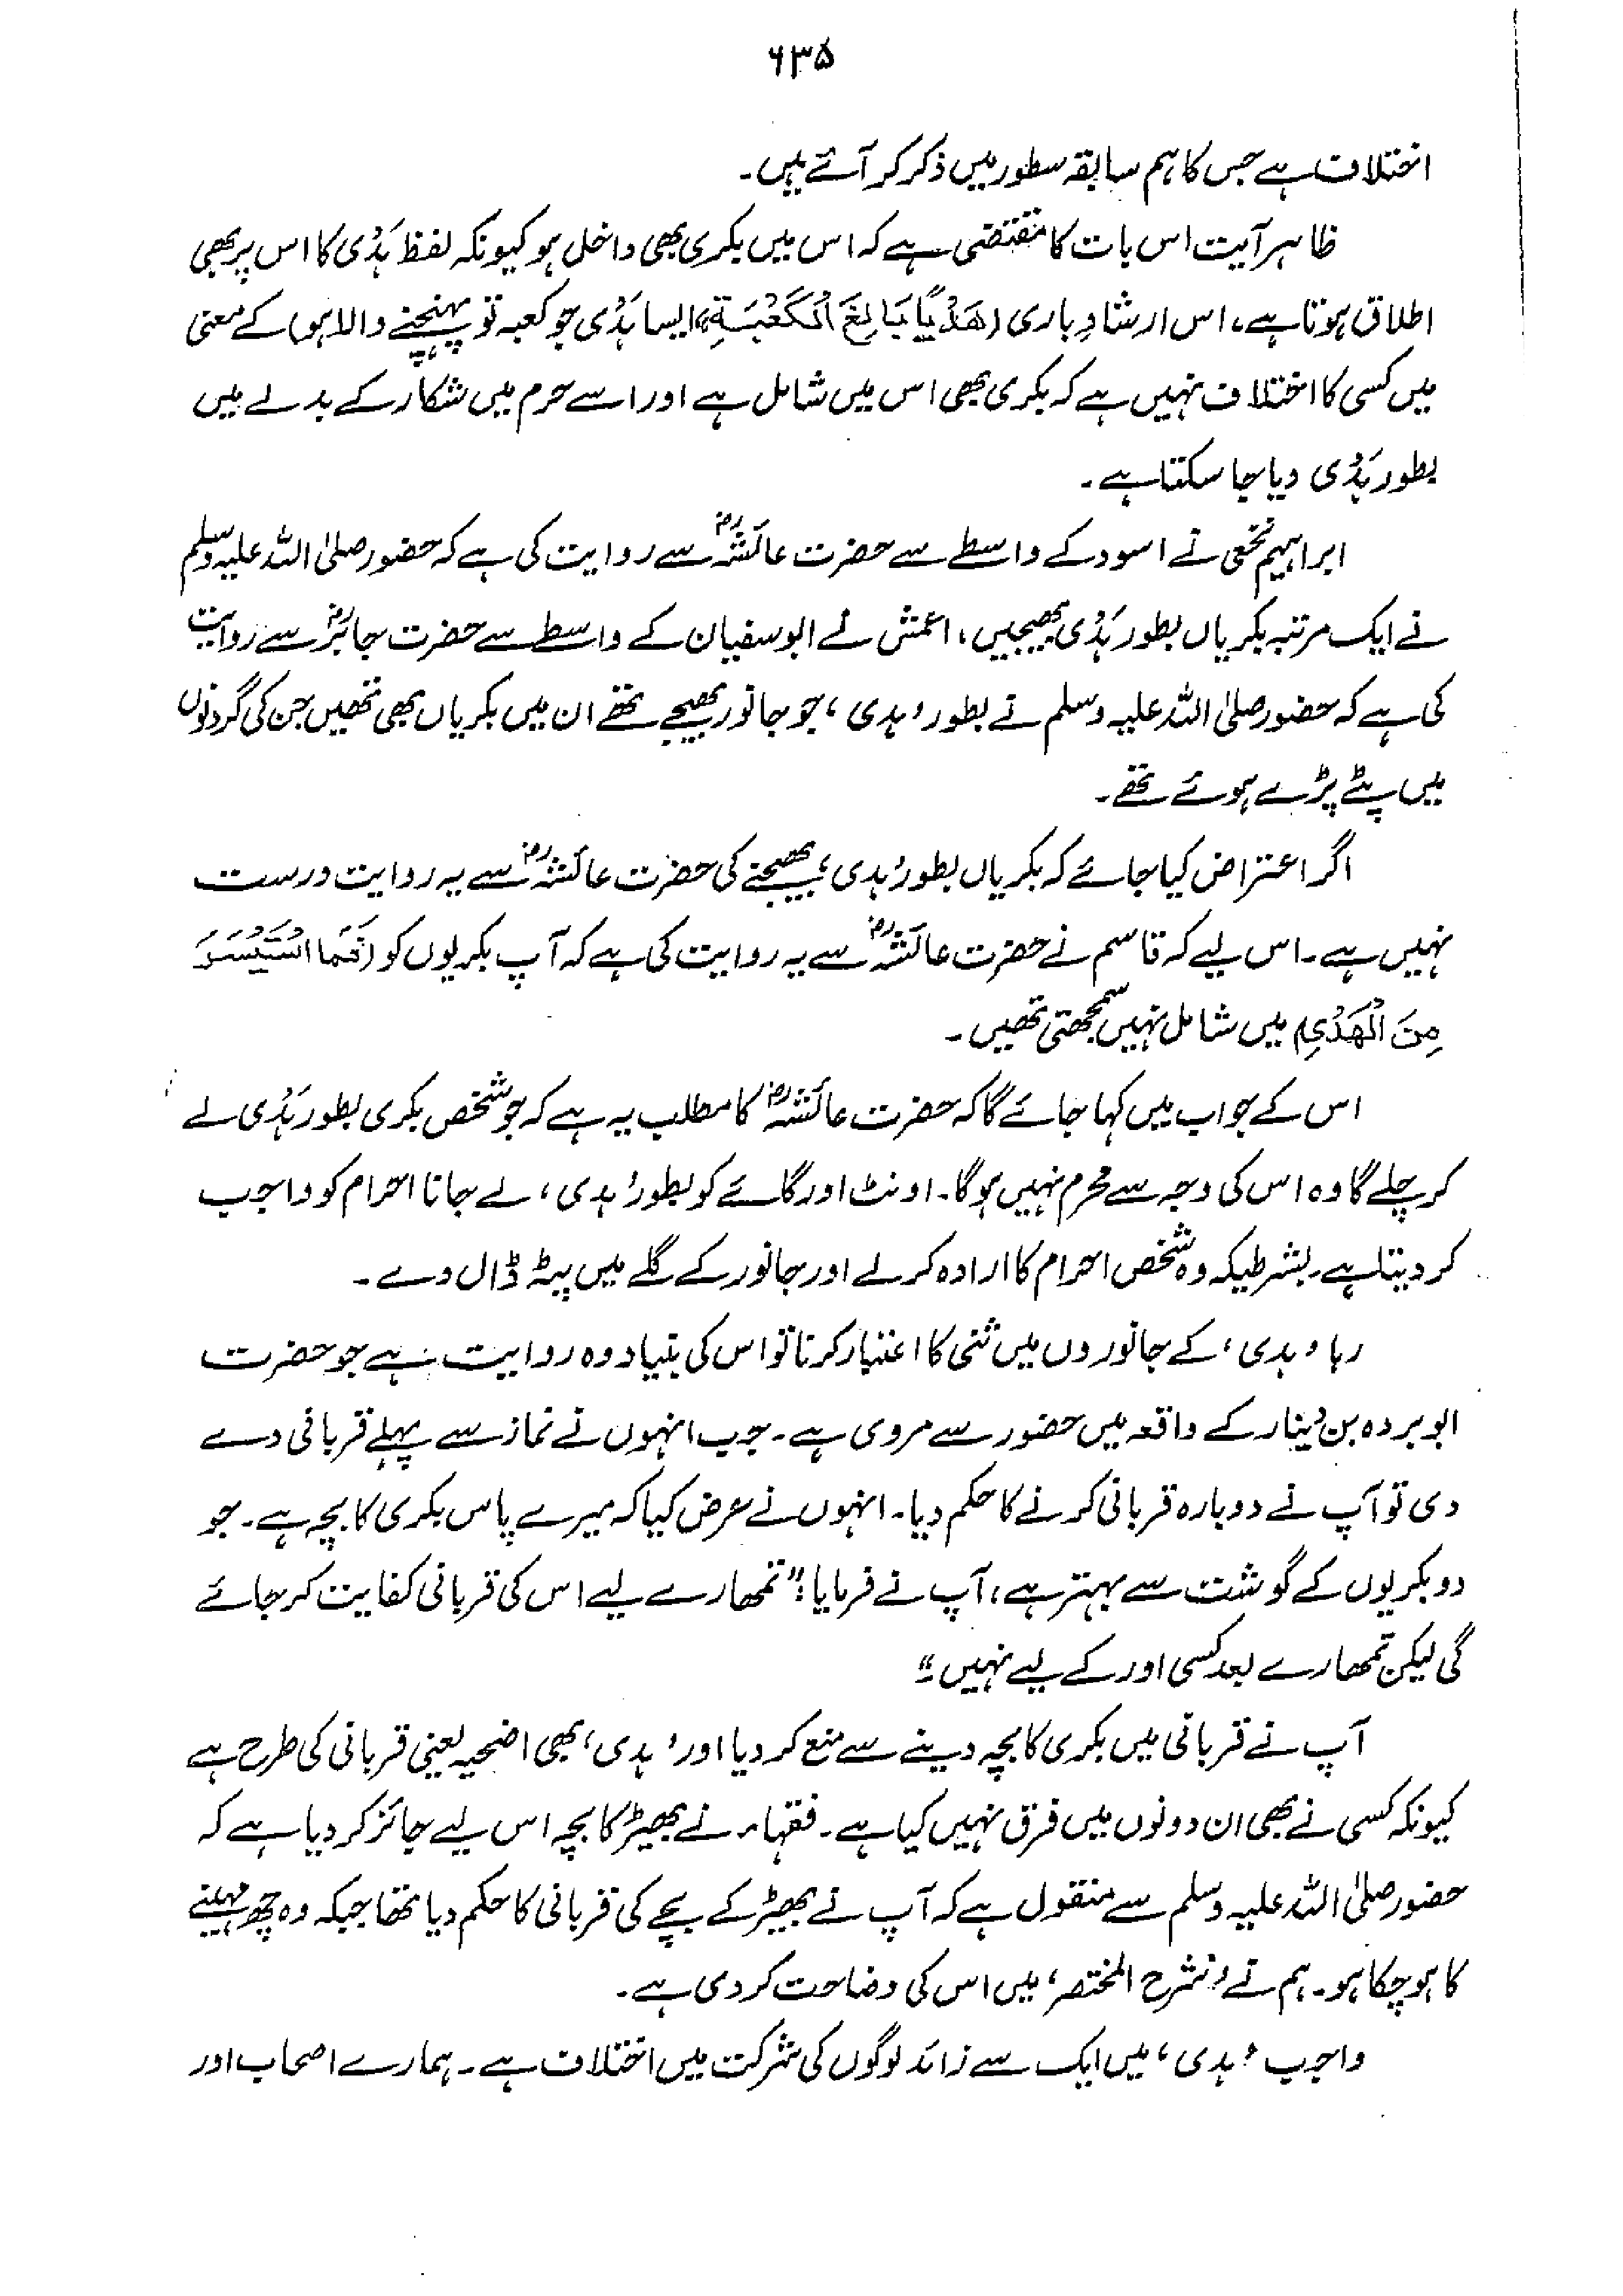 ۶۳۵
اختلاف ہے جس کا ہم سابقہ سطور میں ذکر کر آئے ہیں۔
ظاہر آیت اس بات کا مقتضی ہے کہ اس میں بکری بھی داخل ہو کیونکہ لفظ ہَدْی کا اس پر بھی
اطلاق ہوتا ہے، اس ارشادِ باری (هَدْيًا بَالِغَ الْكَعْبَةِ، ایسا ہَدْی جو کعبہ تو پہنچنے والا ہو) کے معنی
میں کسی کا اختلاف نہیں ہے کہ بکری بھی اس میں شامل ہے اور اسے حرم میں شکار کے بدلے میں
بطور ہَدْی دیا جا سکتا ہے۔
ابراہیم نخعی نے اسود کے واسطے سے حضرت عائشہؓ سے روایت کی ہے کہ حضور صلی اللہ علیہ وسلم
نے ایک مرتبہ بکریاں بطور ہَدْی بھیجیں، اعمش نے ابوسفیان کے واسطے سے حضرت جابرؓ سے روایت
کی ہے کہ حضور صلی اللہ علیہ وسلم نے بطور 'ہدی' جو جانور بھیجے تھے ان میں بکریاں بھی تھیں جن کی گردنوں
میں پٹے پڑے ہوئے تھے۔
اگر اعتراض کیا جائے کہ بکریاں بطور 'ہدی' بھیجنے کی حضرت عائشہؓ سے یہ روایت درست
نہیں ہے۔ اس لیے کہ قاسم نے حضرت عائشہؓ سے یہ روایت کی ہے کہ آپ بکریوں کو (فَمَا اسْتَيْسَرَ
مِنَ الْهَدْيِ) میں شامل نہیں سمجھتی تھیں۔
اس کے جواب میں کہا جائے گا کہ حضرت عائشہؓ کا مطلب یہ ہے کہ جو شخص بکری بطور ہَدْی لے
کر چلے گا وہ اس کی وجہ سے محرم نہیں ہوگا۔ اونٹ اور گائے کو بطور 'ہدی' لے جانا احرام کو واجب
کر دیتا ہے۔ بشرطیکہ وہ شخص احرام کا ارادہ کر لے اور جانور کے گلے میں پٹہ ڈال دے۔
رہا 'ہدی' کے جانوروں میں ثنی کا اعتبار کرنا تو اس کی بنیاد وہ روایت ہے جو حضرت
ابوبردہ بن نینار کے واقعہ میں حضور سے مروی ہے۔ جب انہوں نے نماز سے پہلے قربانی دے
دی تو آپ نے دوبارہ قربانی کرنے کا حکم دیا۔ انہوں نے عرض کیا کہ میرے پاس بکری کا بچہ ہے۔ جو
دو بکریوں کے گوشت سے بہتر ہے، آپ نے فرمایا: "تمھارے لیے اس کی قربانی کفایت کر جائے
گی لیکن تمھارے بعد کسی اور کے لیے نہیں"
آپ نے قربانی میں بکری کا بچہ دینے سے منع کر دیا اور 'ہدی' بھی اضحیہ یعنی قربانی کی طرح ہے
کیونکہ کسی نے بھی ان دونوں میں فرق نہیں کیا ہے۔ فقہاء نے بھیڑ کا بچہ اس لیے جائز کر دیا ہے کہ
حضور صلی اللہ علیہ وسلم سے منقول ہے کہ آپ نے بھیڑ کے بچے کی قربانی کا حکم دیا تھا جبکہ وہ چھ مہینے
کا ہو چکا ہو۔ ہم نے 'شرح المختصر' میں اس کی وضاحت کر دی ہے۔
واجب 'ہدی' میں ایک سے زائد لوگوں کی شرکت میں اختلاف ہے۔ ہمارے اصحاب اور